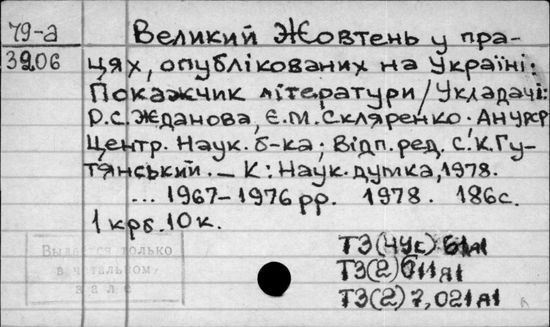 79-а
Великий Жовтень у пра-
3206
цях, опублікованих на Україні:
Покажчик літератури/Укладачі:
Р.С.Жданова, Є.М.Скляренко; АНУРСР
Центр. Наук. б-ка; Відп. ред. С.К.Гу-
тянський. – К: Наук. думка, 1978.
... 1967-1976 рр. 1978. 186с.
1 крб. 10 к.
Выдается только
в читальном
зале
ТЭ(4Ук)61я1
ТЭ(2)611я1
ТЭ(2)7,021я1